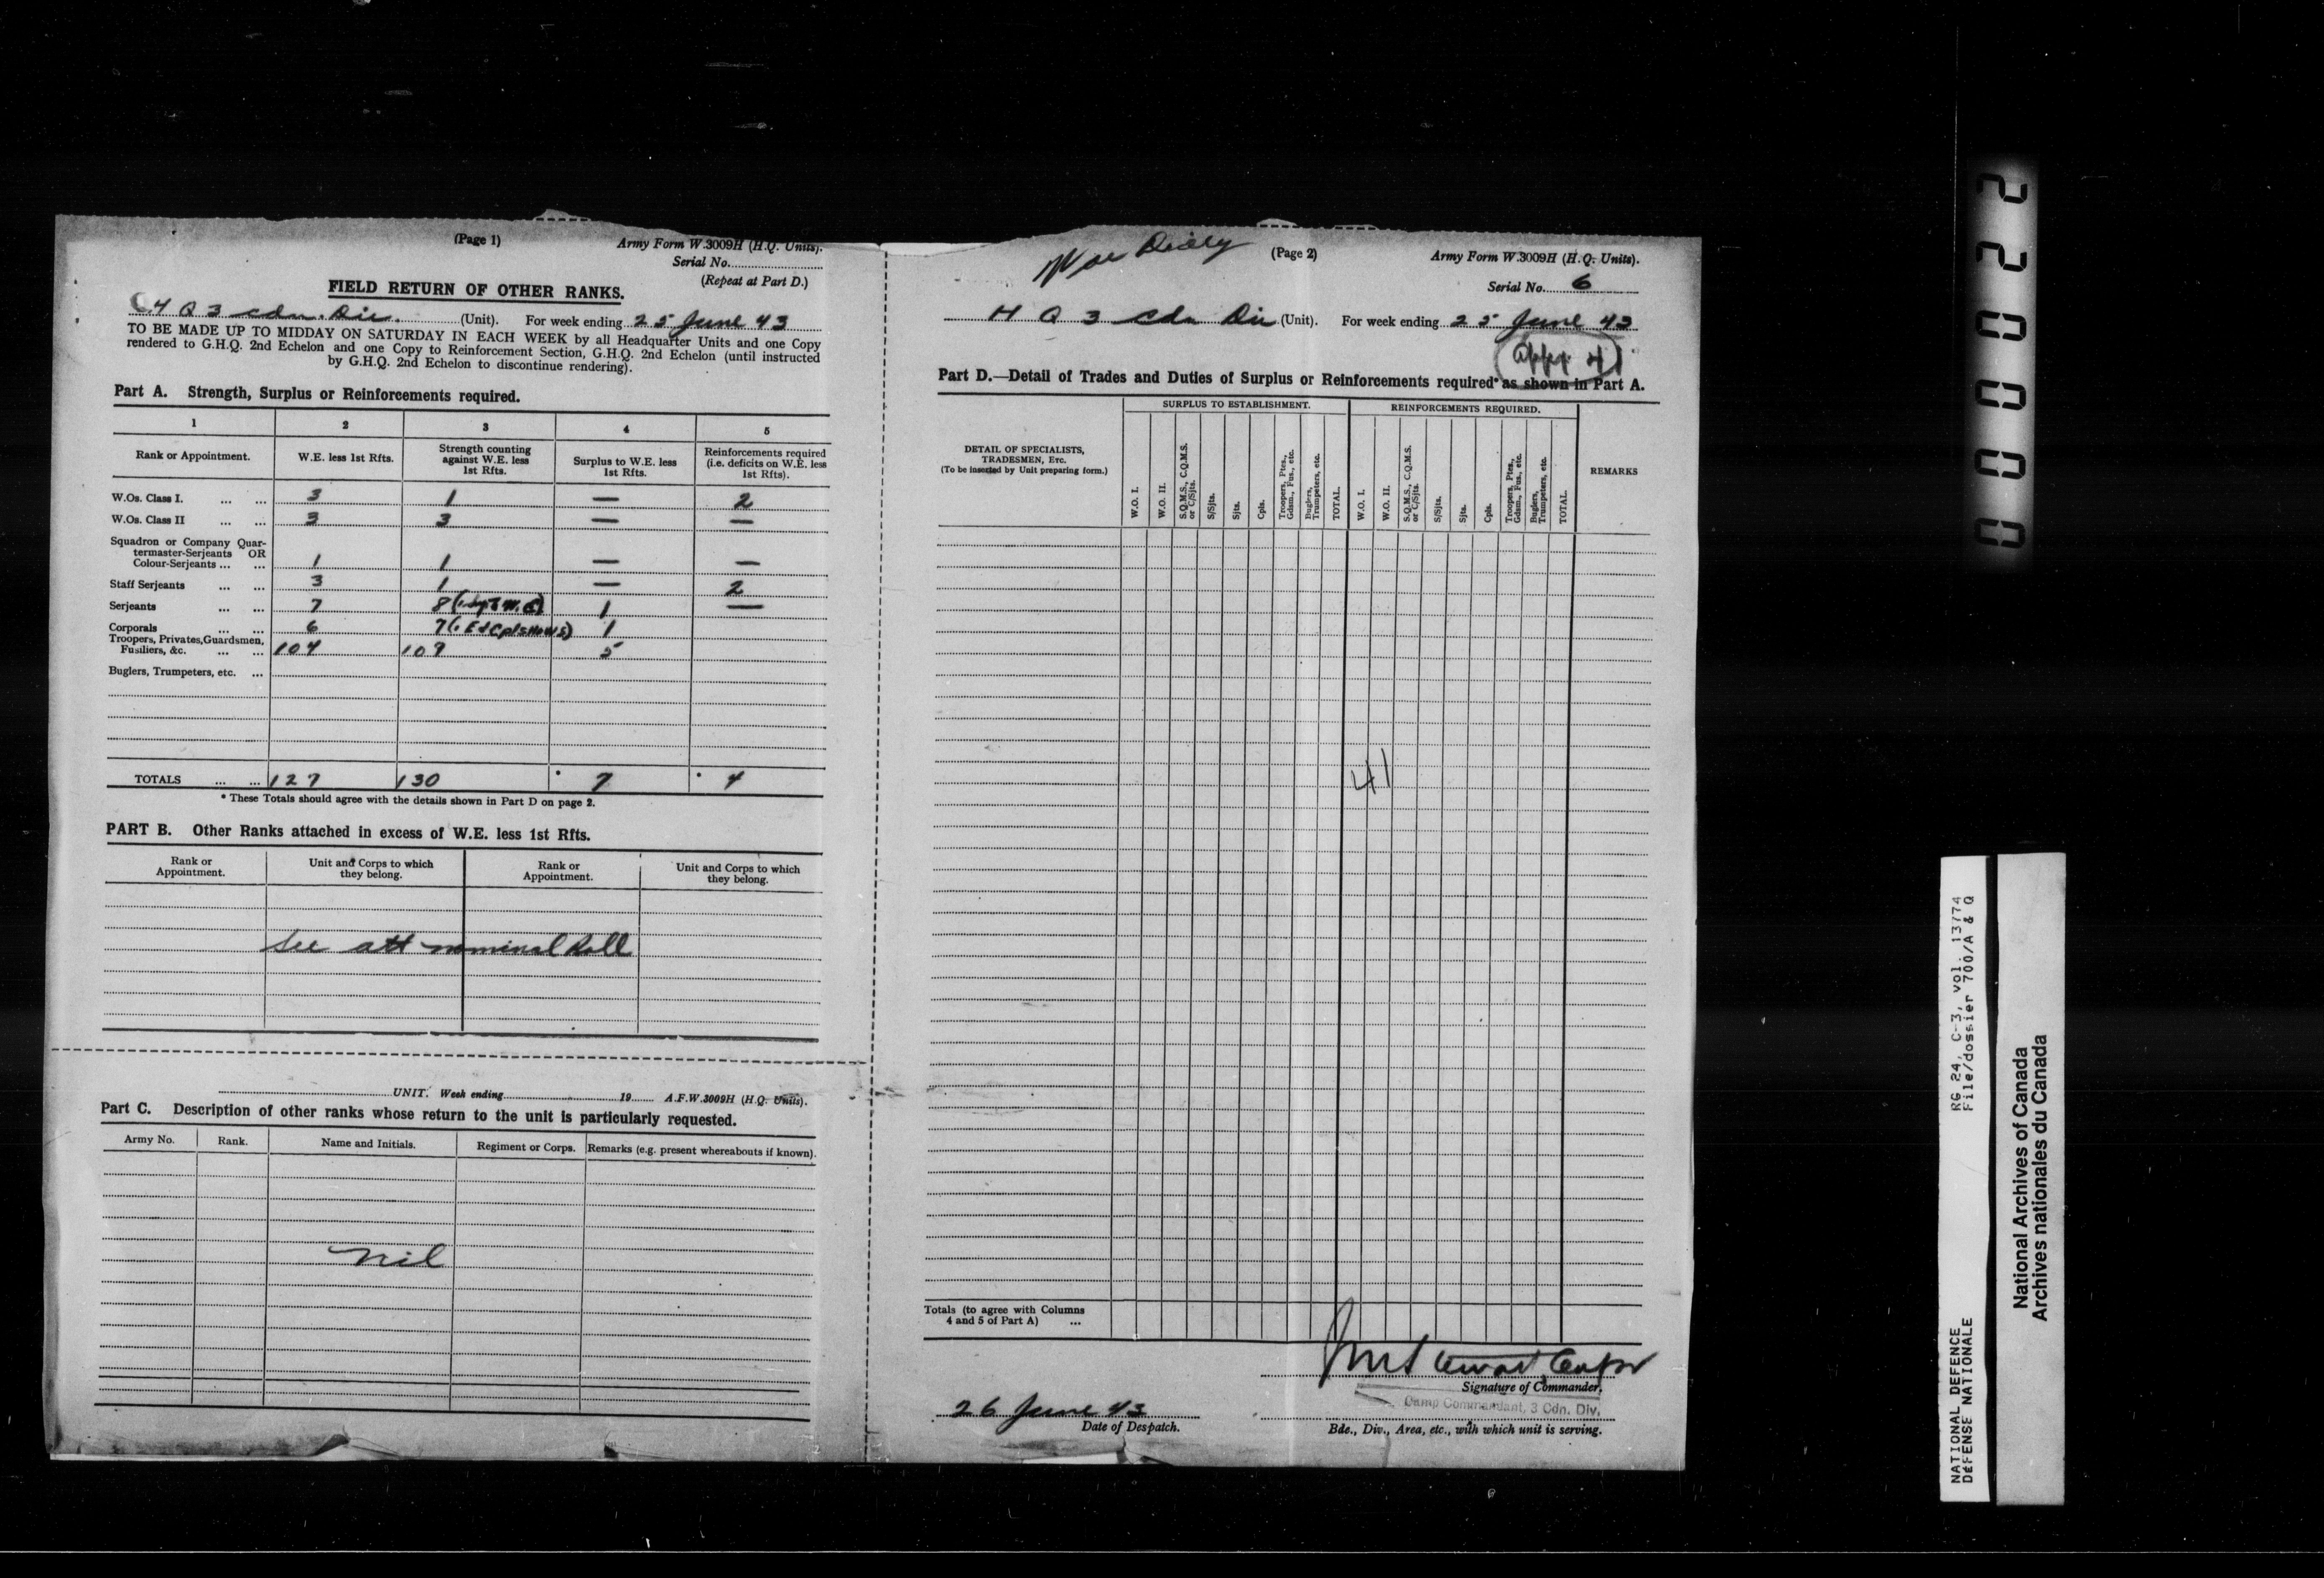 (Page 1)
Army Form W.3009H (H.Q. Units).
Serial No.
(Repeat at Part D.)
FIELD RETURN OF OTHER RANKS.
H Q 3 Cdn. Div. (Unit). For week ending 25 June 43
TO BE MADE UP TO MIDDAY ON SATURDAY IN EACH WEEK by all Headquarter Units and one Copy
rendered to G.H.Q. 2nd Echelon and one Copy to Reinforcement Section, G.H.Q. 2nd Echelon (until instructed
by G.H.Q. 2nd Echelon to discontinue rendering).
Part A. Strength, Surplus or Reinforcements required.
1 2 3 4 5
Rank or Appointment. W.E. less 1st Rfts. Strength counting against W.E. less 1st Rfts. Surplus to W.E. less 1st Rfts. Reinforcements required (i.e. deficits on W.E. less 1st Rfts).
W.Os. Class I. ... ... 3 1 — 2
W.Os. Class II ... ... 3 3 — —
Squadron or Company Quar-
termaster-Serjeants OR
Colour-Serjeants ... ... 1 1 — —
Staff Serjeants ... ... 3 1 — 2
Serjeants ... ... 7 8 1 —
Corporals ... ... 6 7 1
Troopers, Privates, Guardsmen,
Fusiliers, &c. ... ... 104 109 5
Buglers, Trumpeters, etc. ...
TOTALS ... ... 127 130 * 7 * 4
* These Totals should agree with the details shown in Part D on page 2.
PART B. Other Ranks attached in excess of W.E. less 1st Rfts.
Rank or Appointment. Unit and Corps to which they belong. Rank or Appointment. Unit and Corps to which they belong.
See att nominal Roll
UNIT. Week ending 19 A.F.W.3009H (H.Q. Units).
Part C. Description of other ranks whose return to the unit is particularly requested.
Army No. Rank. Name and Initials. Regiment or Corps. Remarks (e.g. present whereabouts if known).
Nil
War Diary
(Page 2)
Army Form W.3009H (H.Q. Units).
Serial No. 6
H Q 3 Cdn Div (Unit). For week ending 25 June 43
Appx 41
Part D.—Detail of Trades and Duties of Surplus or Reinforcements required* as shown in Part A.
DETAIL OF SPECIALISTS, TRADESMEN, ETC. (To be inserted by Unit preparing form.)
SURPLUS TO ESTABLISHMENT. REINFORCEMENTS REQUIRED. REMARKS
W.O. I. W.O. II. S.Q.M.S., C.Q.M.S. or C/Sjts. S/Sjts. Sjts. Cpls. Troopers, Ptes., Gdsmn., Fus., etc. Buglers, Trumpeters, etc. TOTAL.
W.O. I. W.O. II. S.Q.M.S., C.Q.M.S. or C/Sjts. S/Sjts. Sjts. Cpls. Troopers, Ptes., Gdsmn., Fus., etc. Buglers, Trumpeters, etc. TOTAL.
41
Totals (to agree with Columns
4 and 5 of Part A) ...
Signature of Commander.
Camp Commandant, 3 Cdn. Div.
26 June 43
Date of Despatch.
Bde., Div., Area, etc., with which unit is serving.
000022
RG 24, C-3, vol. 13774
File/dossier 700/A & Q
NATIONAL DEFENCE
DÉFENSE NATIONALE
National Archives of Canada
Archives nationales du Canada